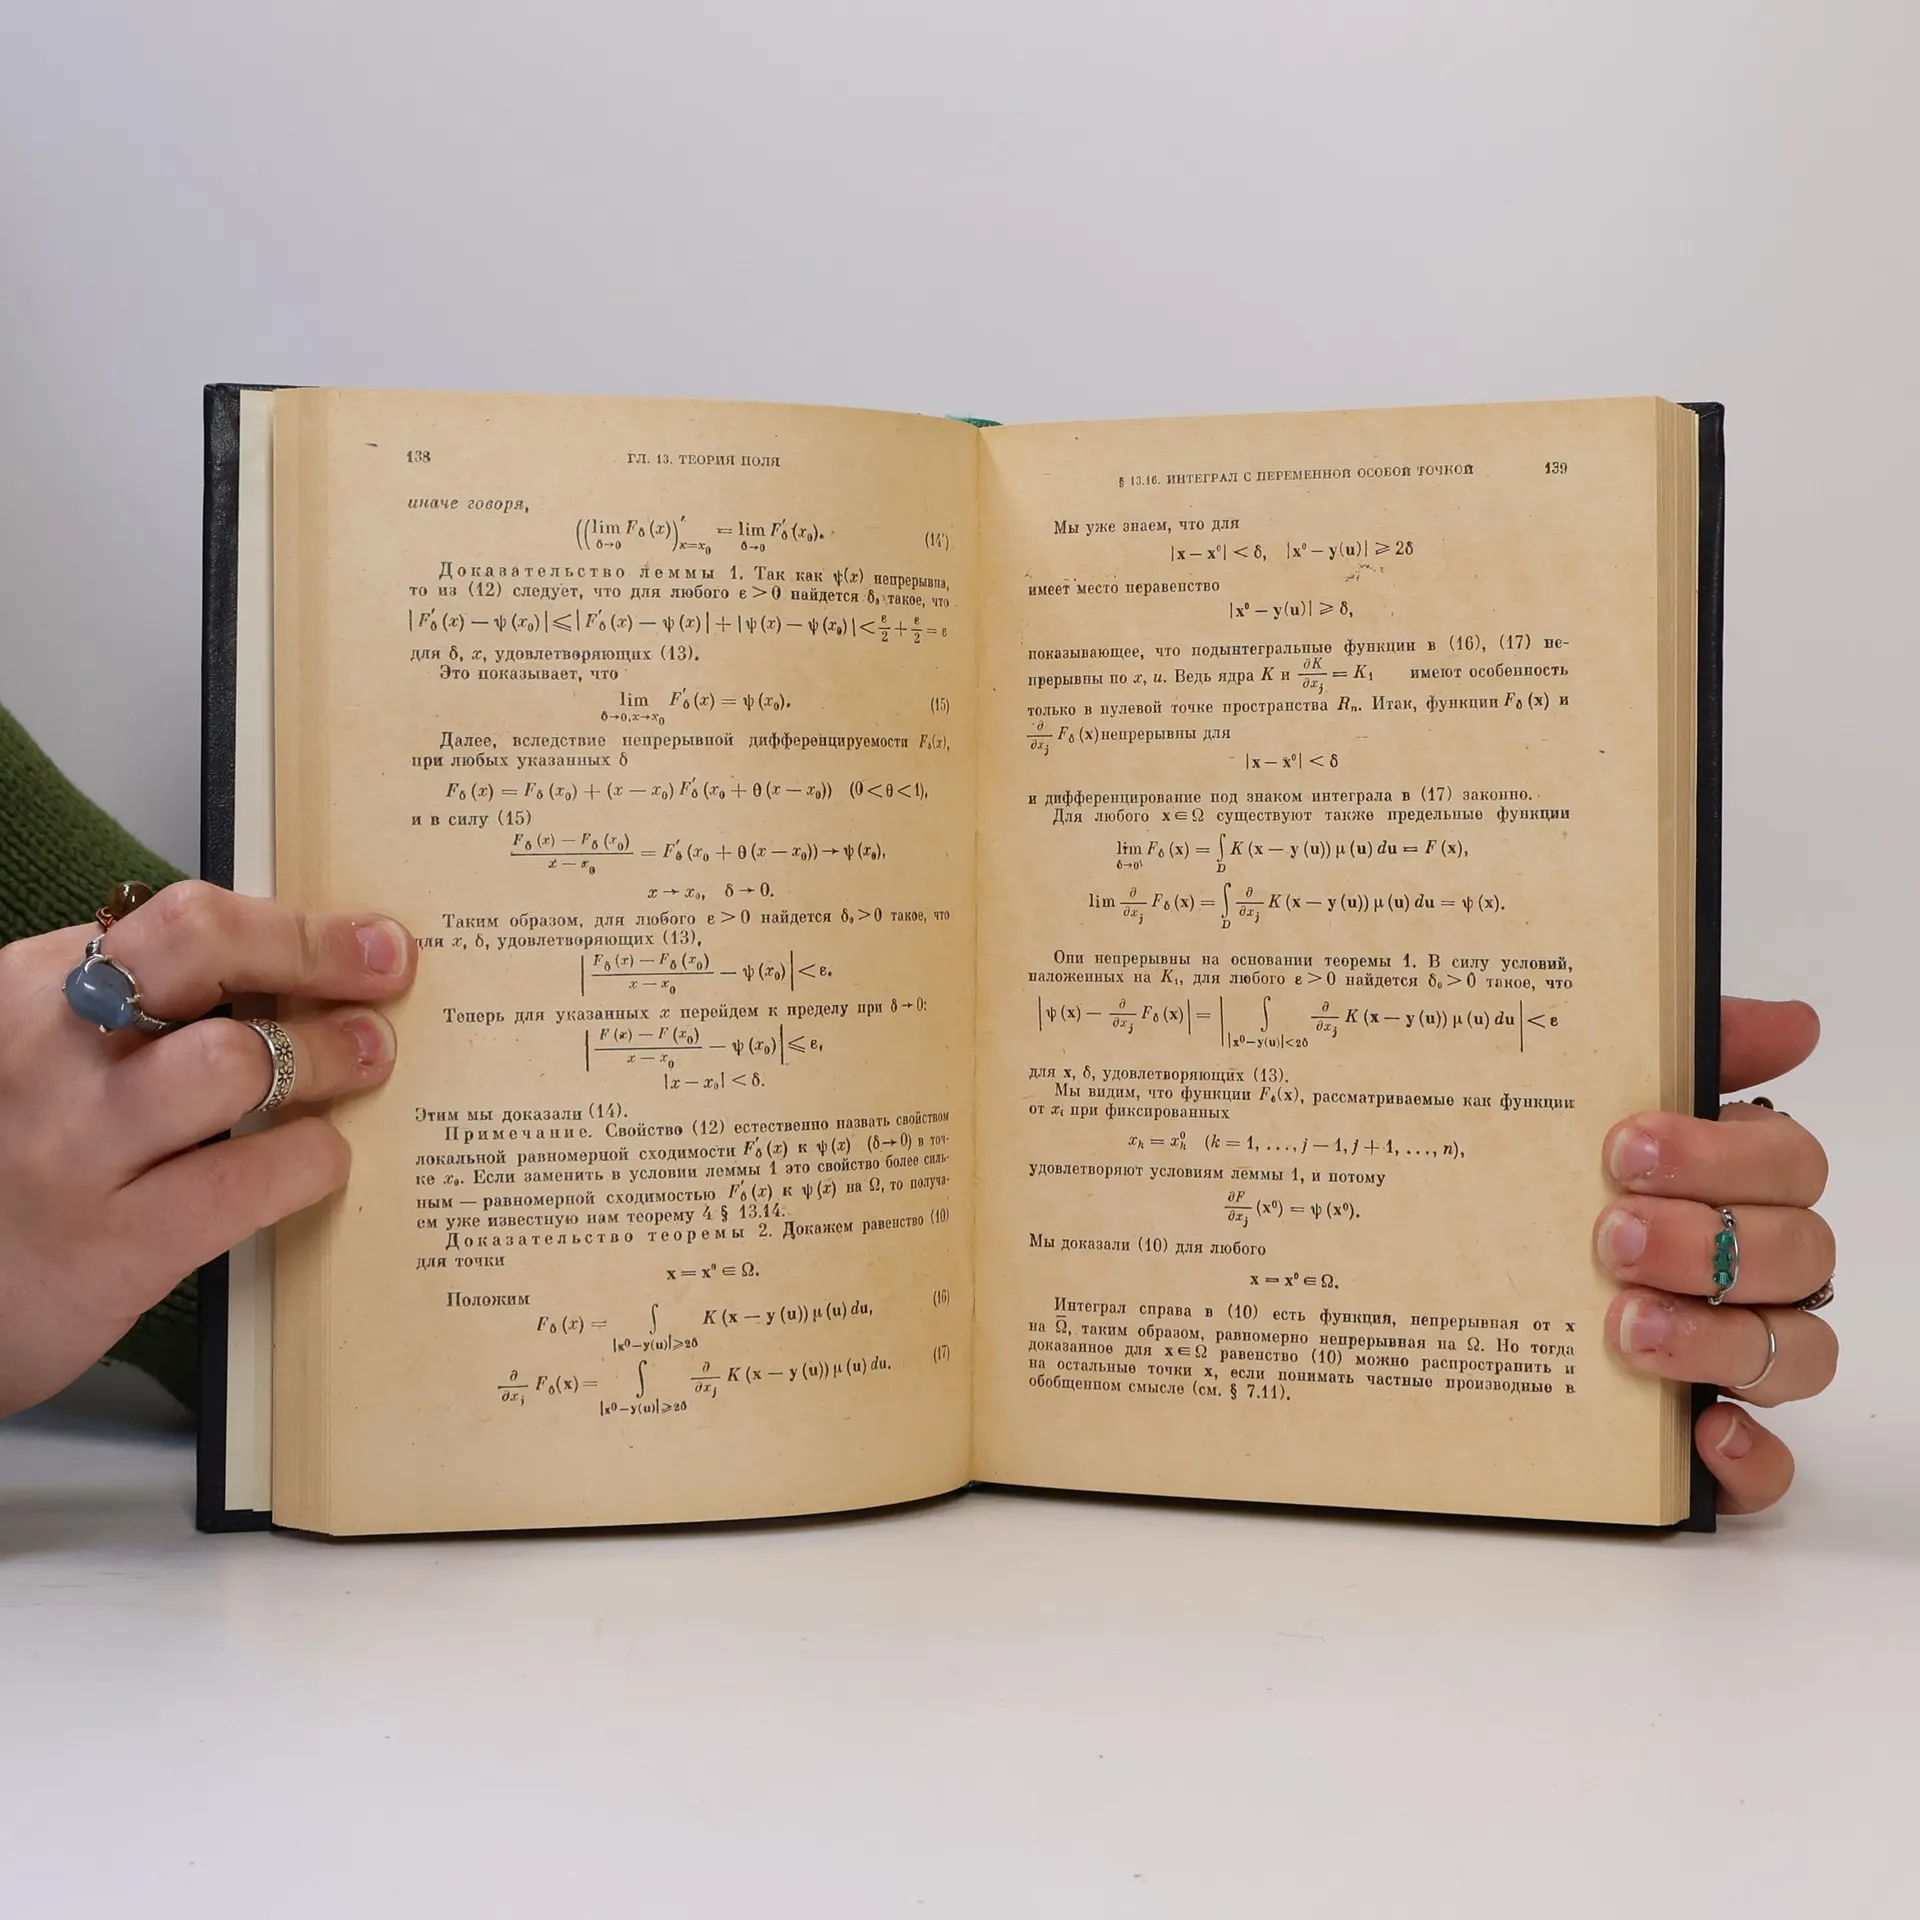 138
ГЛ. 13. ТЕОРИЯ ПОЛЯ
иначе говоря,
((lim F_δ (x))′_{x=x₀} = lim F′_δ (x₀). (14′)
δ→0 δ→0
Доказательство леммы 1. Так как ψ(x) непрерывна,
то из (12) следует, что для любого ε > 0 найдется δ₀ такое, что
| F′_δ (x) — ψ (x₀) | ⩽ | F′_δ (x) — ψ (x) | + | ψ (x) — ψ (x₀) | < ε/2 + ε/2 = ε
для δ, x, удовлетворяющих (13).
Это показывает, что
lim F′_δ (x) = ψ (x₀). (15)
δ→0, x→x₀
Далее, вследствие непрерывной дифференцируемости F_δ(x),
при любых указанных δ
F_δ (x) = F_δ (x₀) + (x — x₀) F′_δ (x₀ + θ (x — x₀)) (0 < θ < 1),
и в силу (15)
(F_δ (x) — F_δ (x₀)) / (x — x₀) = F′_δ (x₀ + θ (x — x₀)) → ψ (x₀),
x → x₀, δ → 0.
Таким образом, для любого ε > 0 найдется δ₀ > 0 такое, что
для x, δ, удовлетворяющих (13),
| (F_δ (x) — F_δ (x₀)) / (x — x₀) — ψ (x₀) | < ε.
Теперь для указанных x перейдем к пределу при δ → 0:
| (F (x) — F (x₀)) / (x — x₀) — ψ (x₀) | ⩽ ε,
|x — x₀| < δ.
Этим мы доказали (14).
Примечание. Свойство (12) естественно назвать свойством
локальной равномерной сходимости F′_δ (x) к ψ (x) (δ → 0) в точ-
ке x₀. Если заменить в условии леммы 1 это свойство более силь-
ным — равномерной сходимостью F′_δ (x) к ψ (x) на Ω, то получа-
ем уже известную нам теорему 4 § 13.14.
Доказательство теоремы 2. Докажем равенство (10)
для точки
x = x⁰ ∈ Ω.
Положим
F_δ (x) = ∫_{|x⁰—y(u)|⩾2δ} K (x — y (u)) μ (u) du, (16)
∂/∂x_j F_δ(x) = ∫_{|x⁰—y(u)|⩾2δ} ∂/∂x_j K (x — y (u)) μ (u) du. (17)
§ 13.16. ИНТЕГРАЛ С ПЕРЕМЕННОЙ ОСОБОЙ ТОЧКОЙ
139
Мы уже знаем, что для
|x — x⁰| < δ, |x⁰ — y(u)| ⩾ 2δ
имеет место неравенство
|x⁰ — y(u)| ⩾ δ,
показывающее, что подынтегральные функции в (16), (17) не-
прерывны по x, u. Ведь ядра K и ∂K/∂x_j = K₁ имеют особенность
только в нулевой точке пространства Rₙ. Итак, функции F_δ (x) и
∂/∂x_j F_δ (x) непрерывны для
|x — x⁰| < δ
и дифференцирование под знаком интеграла в (17) законно.
Для любого x ∈ Ω существуют также предельные функции
lim F_δ (x) = ∫_D K (x — y (u)) μ (u) du = F (x),
δ→0
lim ∂/∂x_j F_δ (x) = ∫_D ∂/∂x_j K (x — y (u)) μ (u) du = ψ (x).
Они непрерывны на основании теоремы 1. В силу условий,
наложенных на K₁, для любого ε > 0 найдется δ₀ > 0 такое, что
| ψ (x) — ∂/∂x_j F_δ (x) | = | ∫_{|x⁰—y(u)|<2δ} ∂/∂x_j K (x — y (u)) μ (u) du | < ε
для x, δ, удовлетворяющих (13).
Мы видим, что функции F_δ(x), рассматриваемые как функции
от x_i при фиксированных
x_k = x⁰_k (k = 1, ..., j — 1, j + 1, ..., n),
удовлетворяют условиям леммы 1, и потому
∂F/∂x_j (x⁰) = ψ (x⁰).
Мы доказали (10) для любого
x = x⁰ ∈ Ω.
Интеграл справа в (10) есть функция, непрерывная от x
на Ω̄, таким образом, равномерно непрерывная на Ω. Но тогда
доказанное для x ∈ Ω равенство (10) можно распространить и
на остальные точки x, если понимать частные производные в
обобщенном смысле (см. § 7.11).